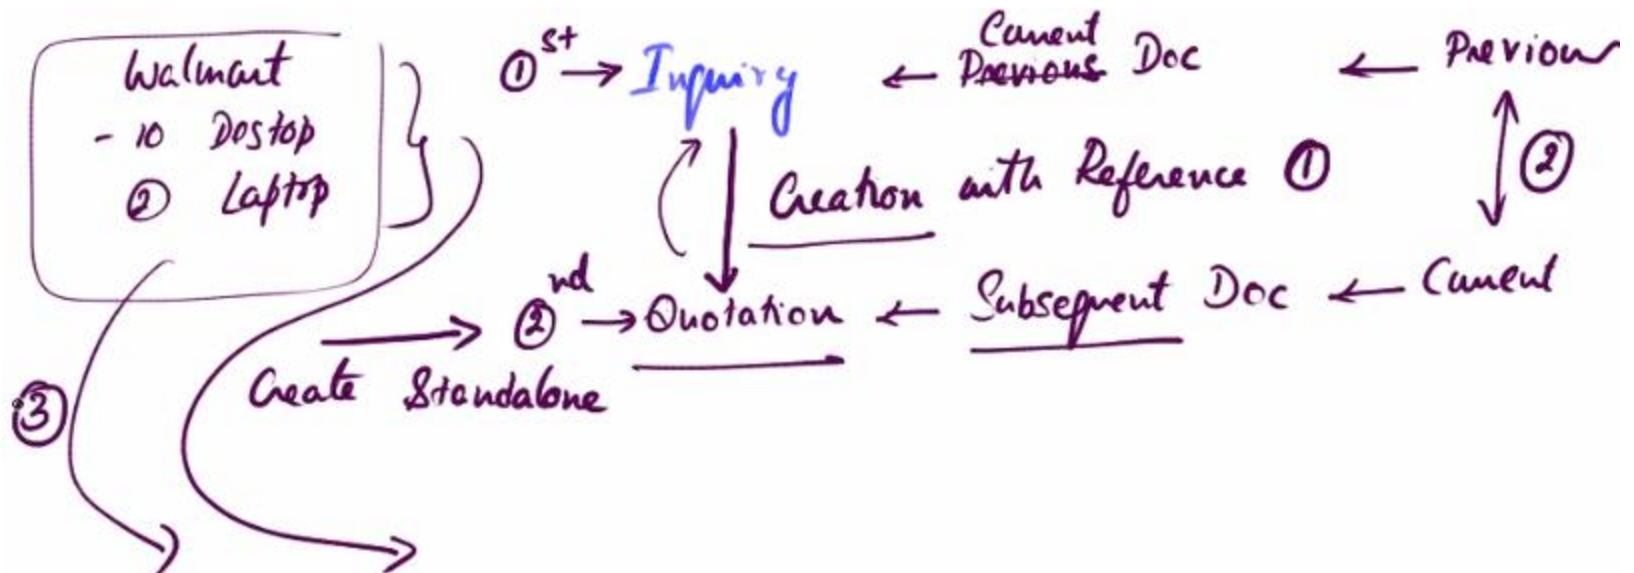 Walmart
- 10 Desktop
② Laptop
①st → Inquiry ← Current Previous Doc ← Previous
Creation with Reference ①
②
②nd → Quotation ← Subsequent Doc ← Current
Create Standalone
③